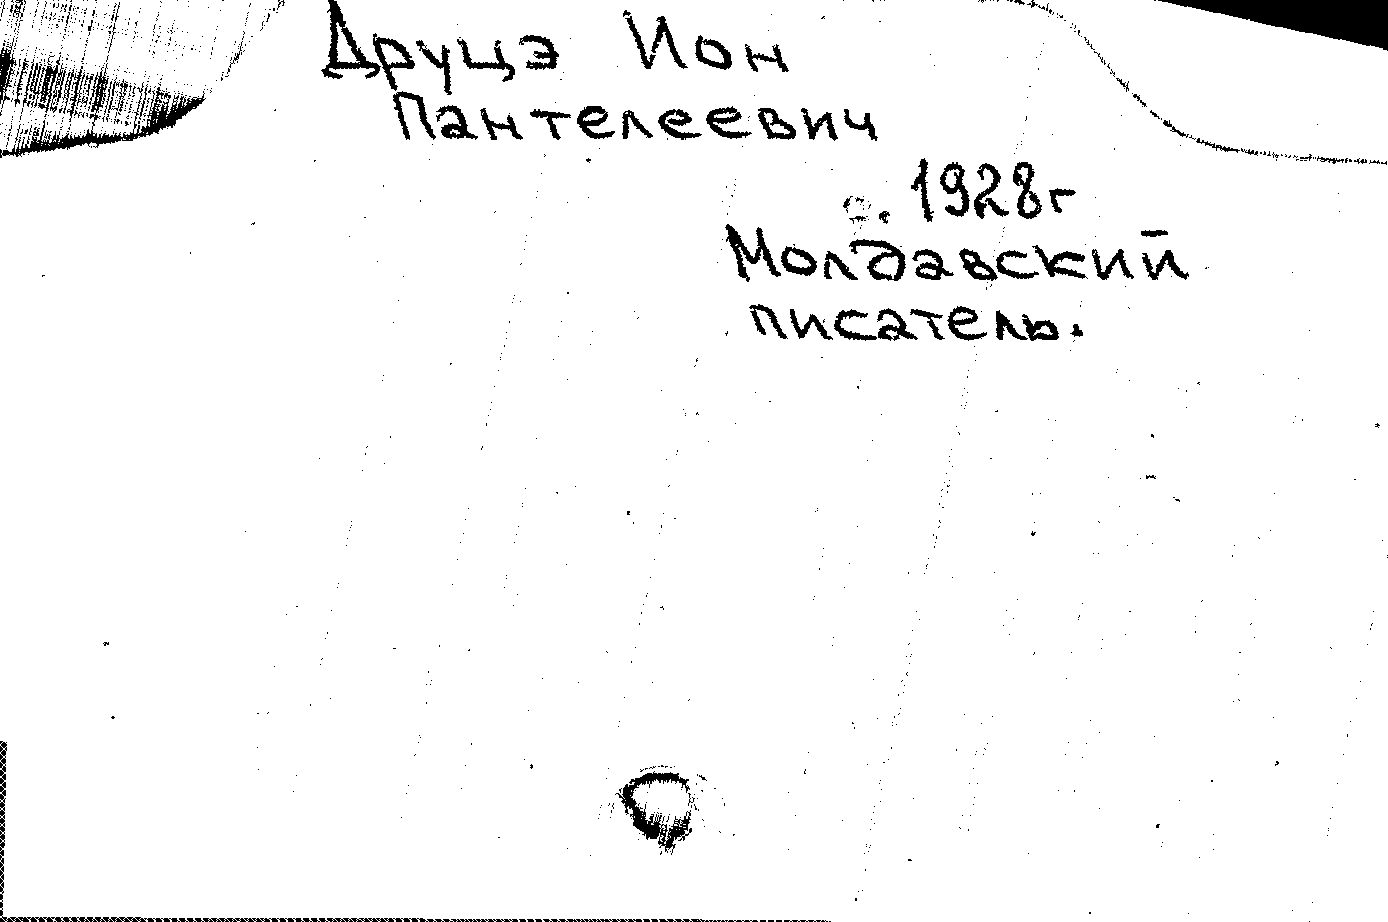 Друцэ Ион
Пантелеевич
. 1928г
Молдавский
писатель.